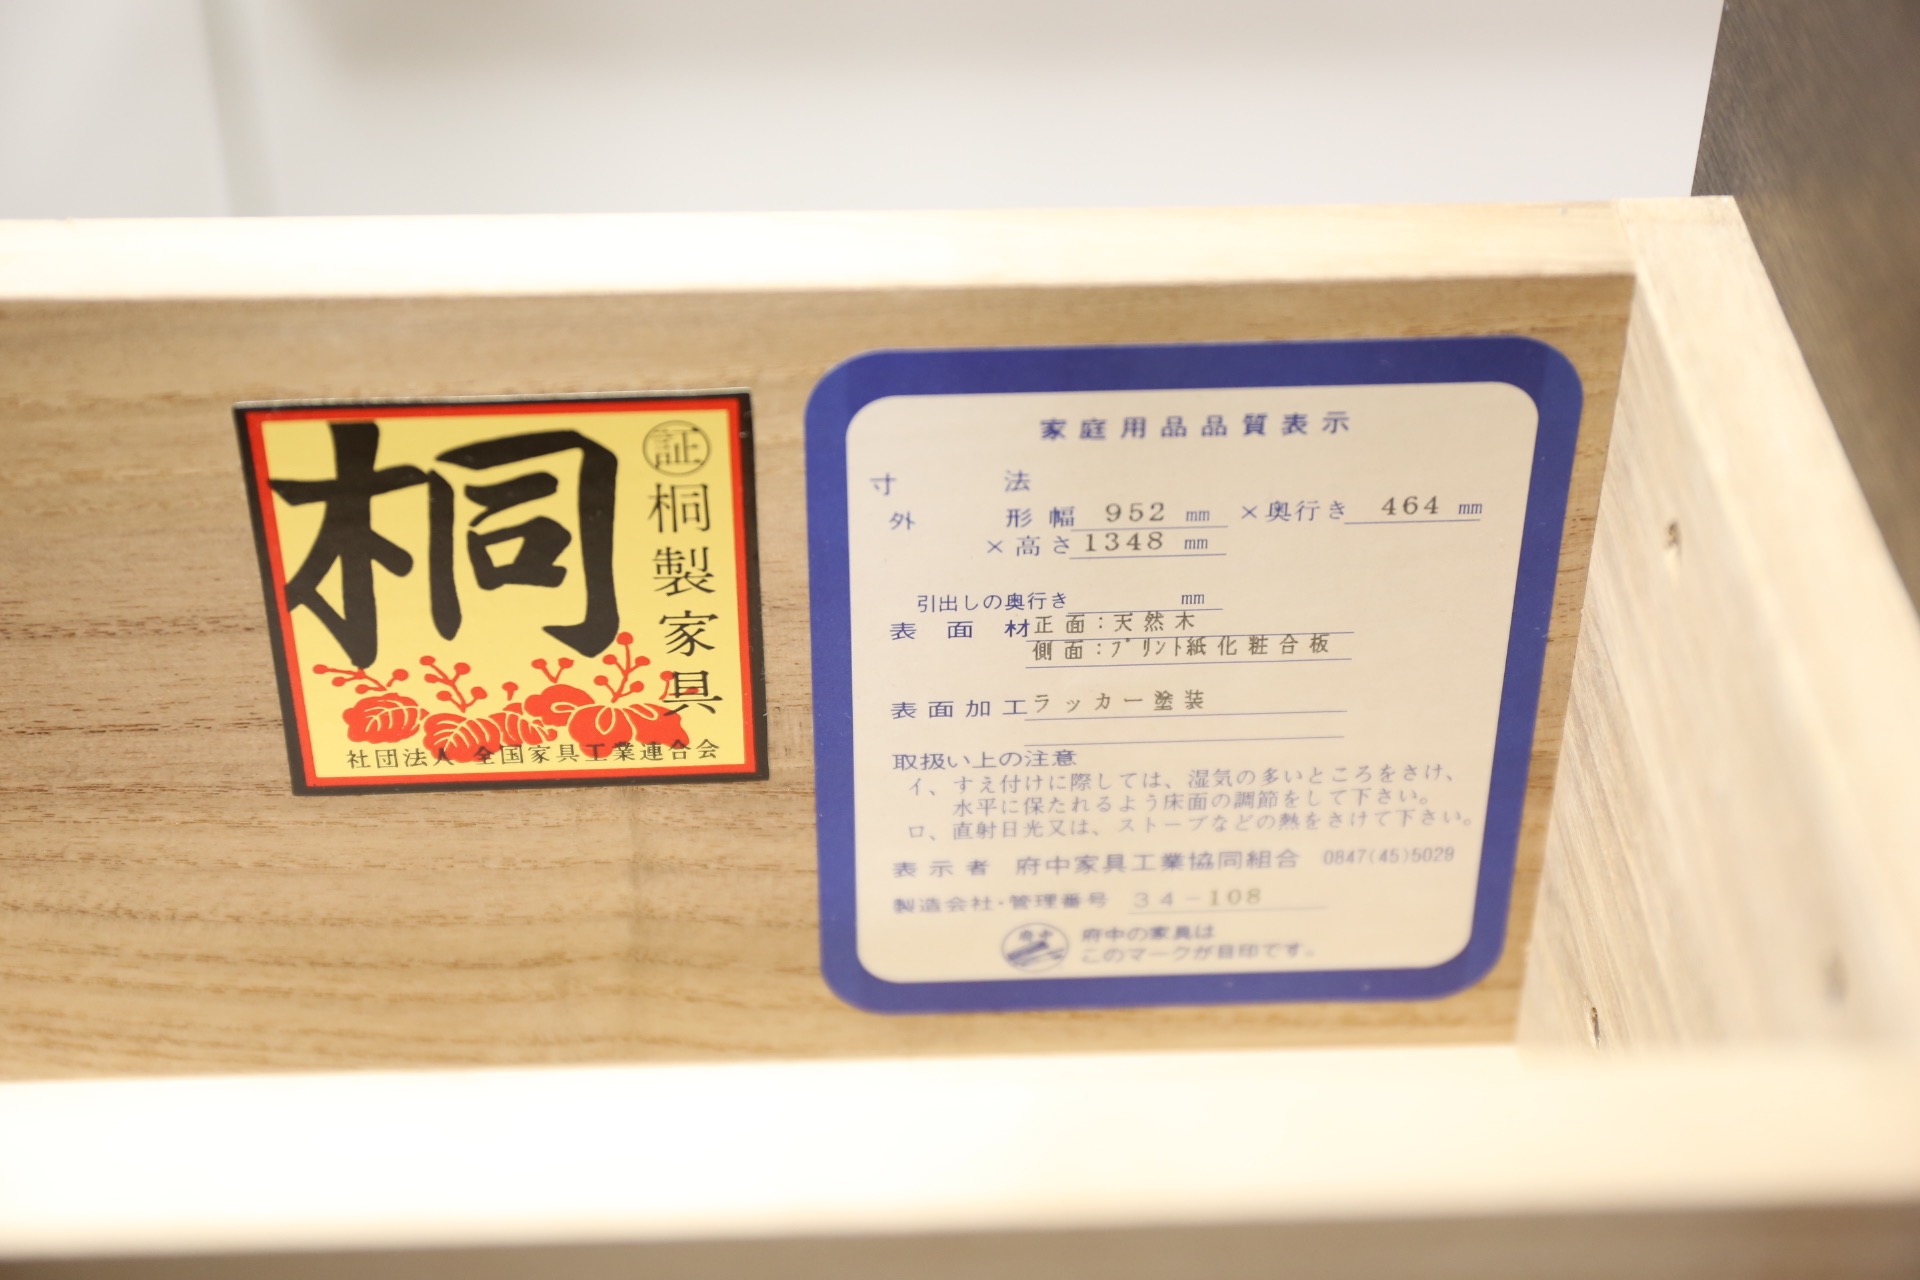 桐
証
桐製家具
社団法人 全国家具工業連合会
家庭用品品質表示
寸法
外形幅 952 mm ×奥行き 464 mm
×高さ 1348 mm
引出しの奥行き mm
表面材 正面:天然木
側面:プリント紙化粧合板
表面加工 ラッカー塗装
取扱い上の注意
イ、すえ付けに際しては、湿気の多いところをさけ、
水平に保たれるよう床面の調節をして下さい。
ロ、直射日光又は、ストーブなどの熱をさけて下さい。
表示者 府中家具工業協同組合 0847(45)5029
製造会社・管理番号 34-108
府中
府中の家具は
このマークが目印です。